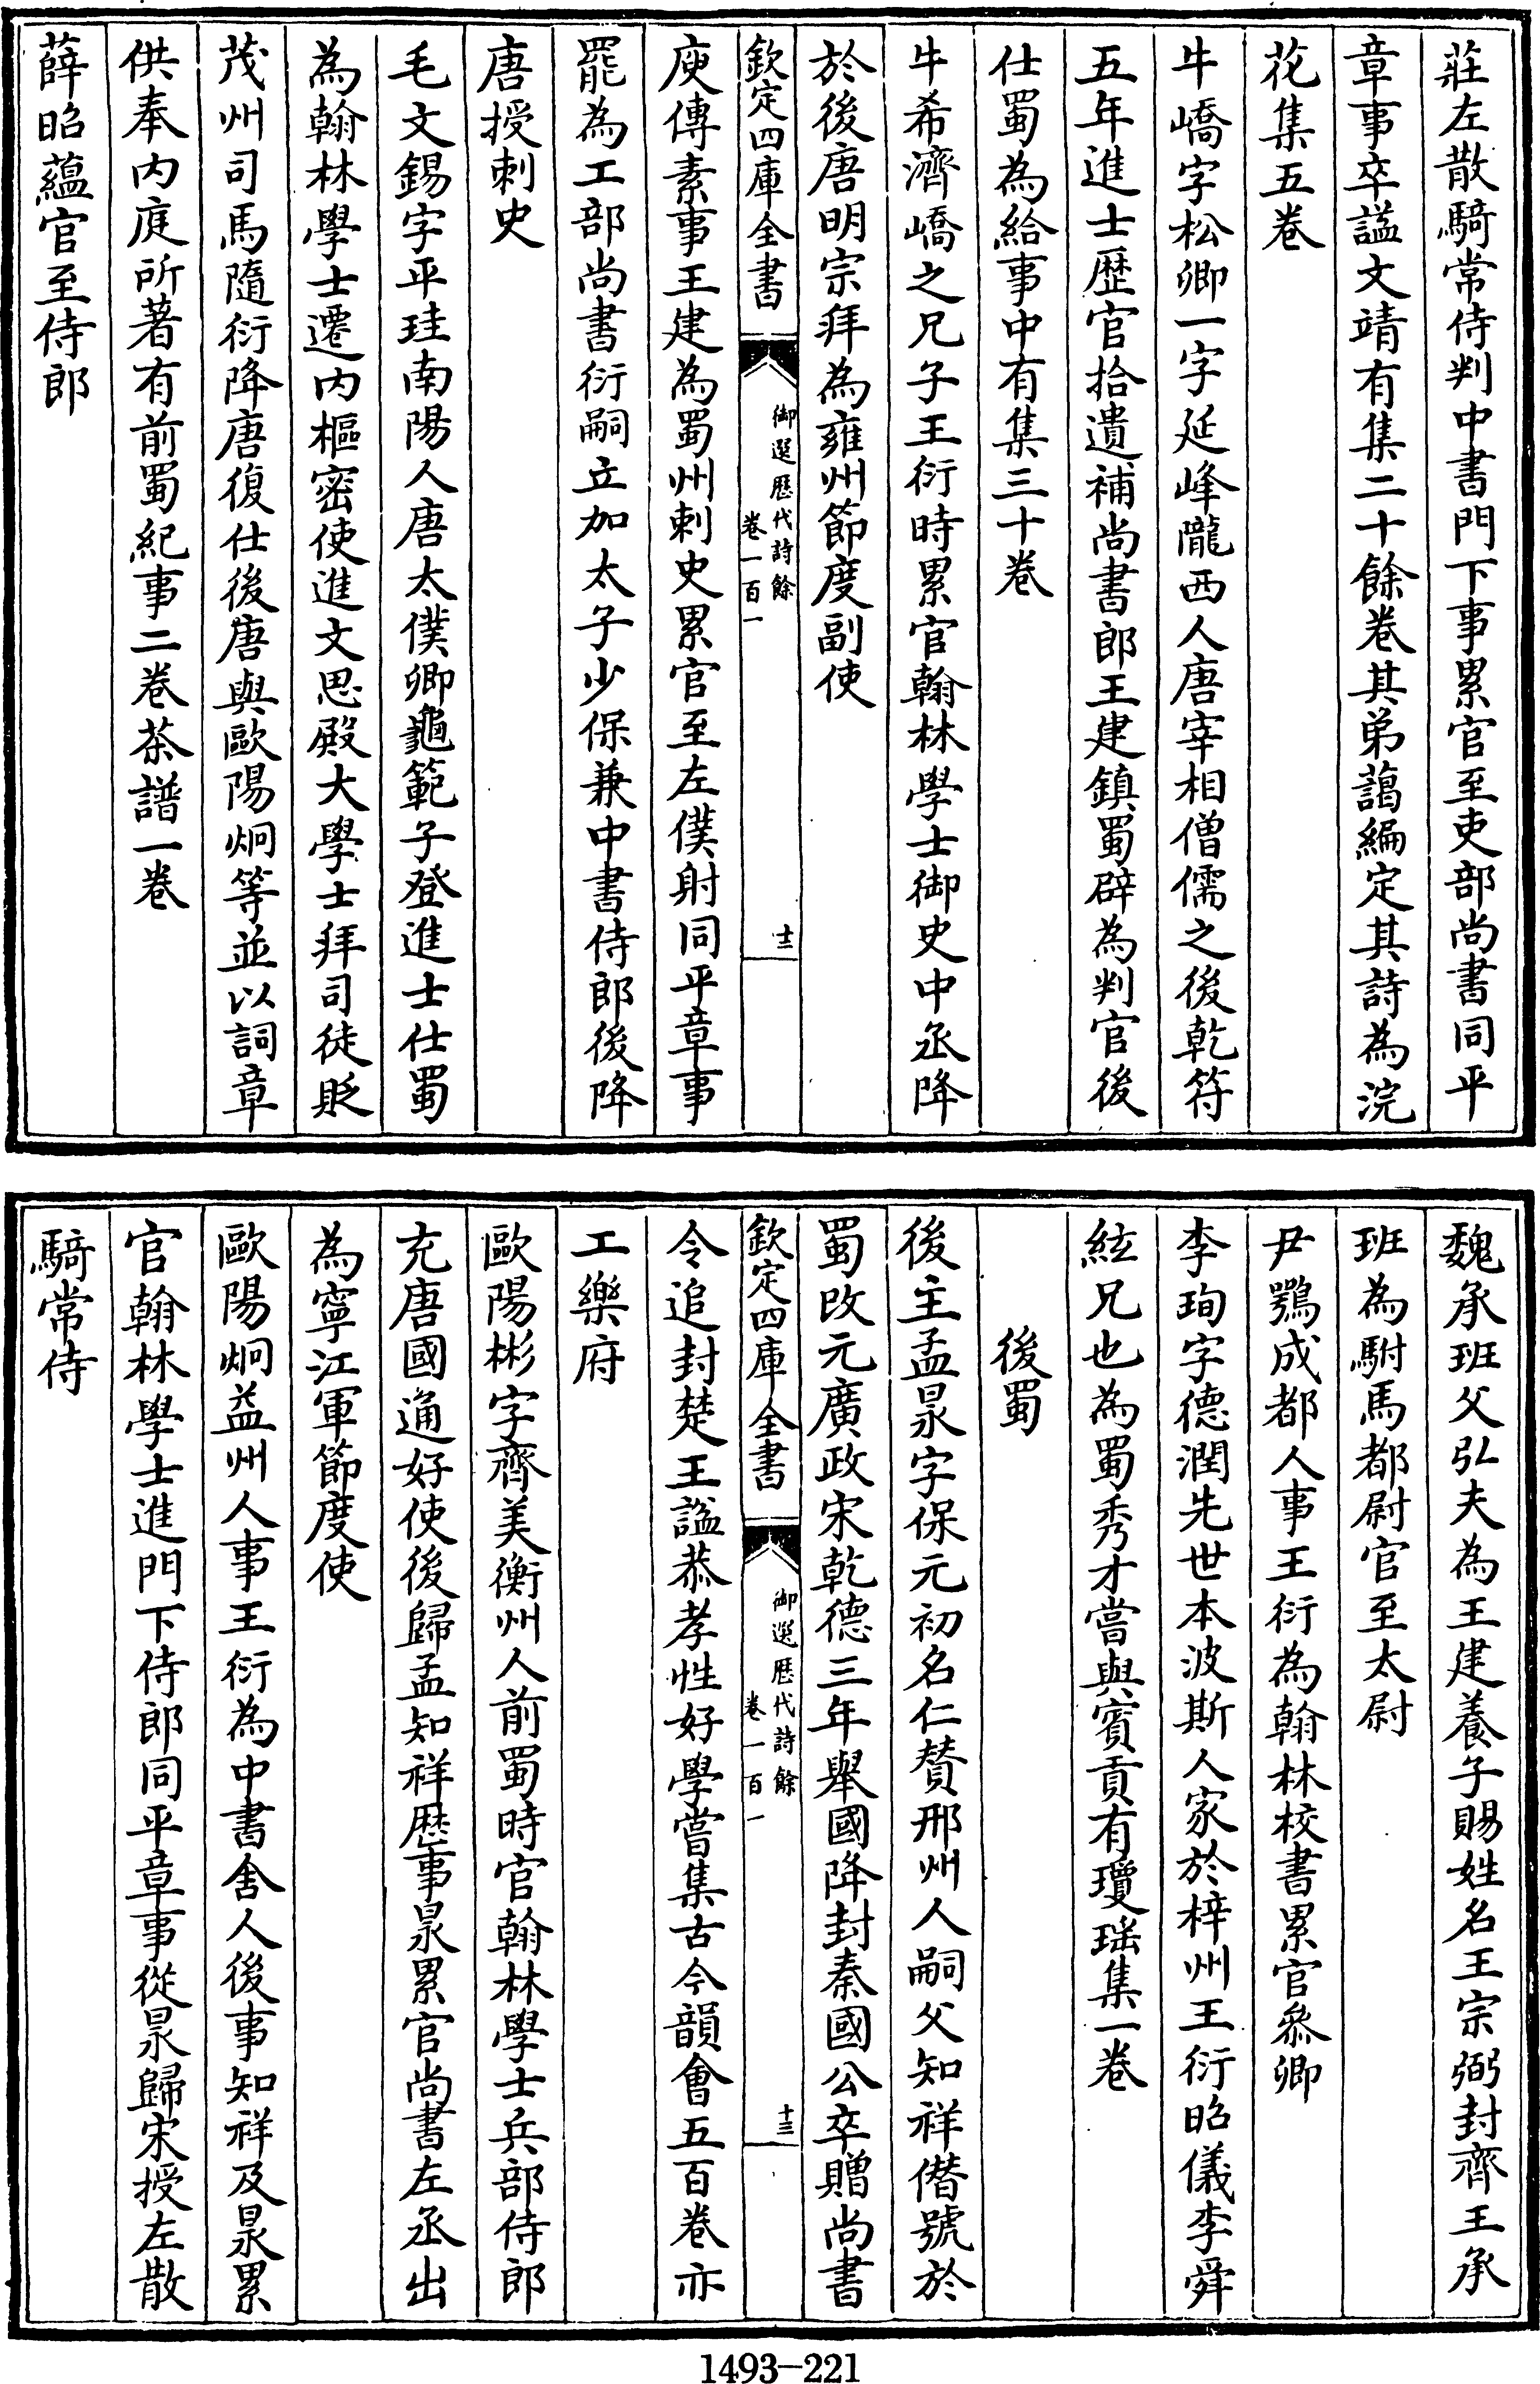 莊左散騎常侍判中書門下事累官至吏部尚書同平
章事卒諡文靖有集二十餘卷其弟藹編定其詩為浣
花集五卷
牛嶠字松卿一字延峰隴西人唐宰相僧儒之後乾符
五年進士歴官拾遺補尚書郎王建鎮蜀辟為判官後
仕蜀為給事中有集三十卷
牛希濟嶠之兄子王衍時累官翰林學士御史中丞降
於後唐明宗拜為雍州節度副使
欽定四庫全書
御選歴代詩餘
卷一百一
十二
庾傳素事王建為蜀州刺史累官至左僕射同平章事
罷為工部尚書衍嗣立加太子少保兼中書侍郎後降
唐授刺史
毛文錫字平珪南陽人唐太僕卿龜範子登進士仕蜀
為翰林學士遷內樞密使進文思殿大學士拜司徒貶
茂州司馬隨衍降唐復仕後唐與歐陽炯等並以詞章
供奉内庭所著有前蜀紀事二卷茶譜一卷
薛昭蘊官至侍郎
魏承班父弘夫為王建養子賜姓名王宗弼封齊王承
班為駙馬都尉官至太尉
尹鶚成都人事王衍為翰林校書累官叅卿
李珣字德潤先世本波斯人家於梓州王衍昭儀李舜
絃兄也為蜀秀才嘗與賓貢有瓊瑤集一卷
後蜀
後主孟昶字保元初名仁贊邢州人嗣父知祥僭號於
蜀改元廣政宋乾德三年舉國降封秦國公卒贈尚書
欽定四庫全書
御選歴代詩餘
卷一百一
十三
令追封楚王諡恭孝性好學嘗集古今韻會五百卷亦
工樂府
歐陽彬字齊美衡州人前蜀時官翰林學士兵部侍郎
充唐國通好使後歸孟知祥歴事昶累官尚書左丞出
為寧江軍節度使
歐陽炯益州人事王衍為中書舍人後事知祥及昶累
官翰林學士進門下侍郎同平章事從昶歸宋授左散
騎常侍
1493-221